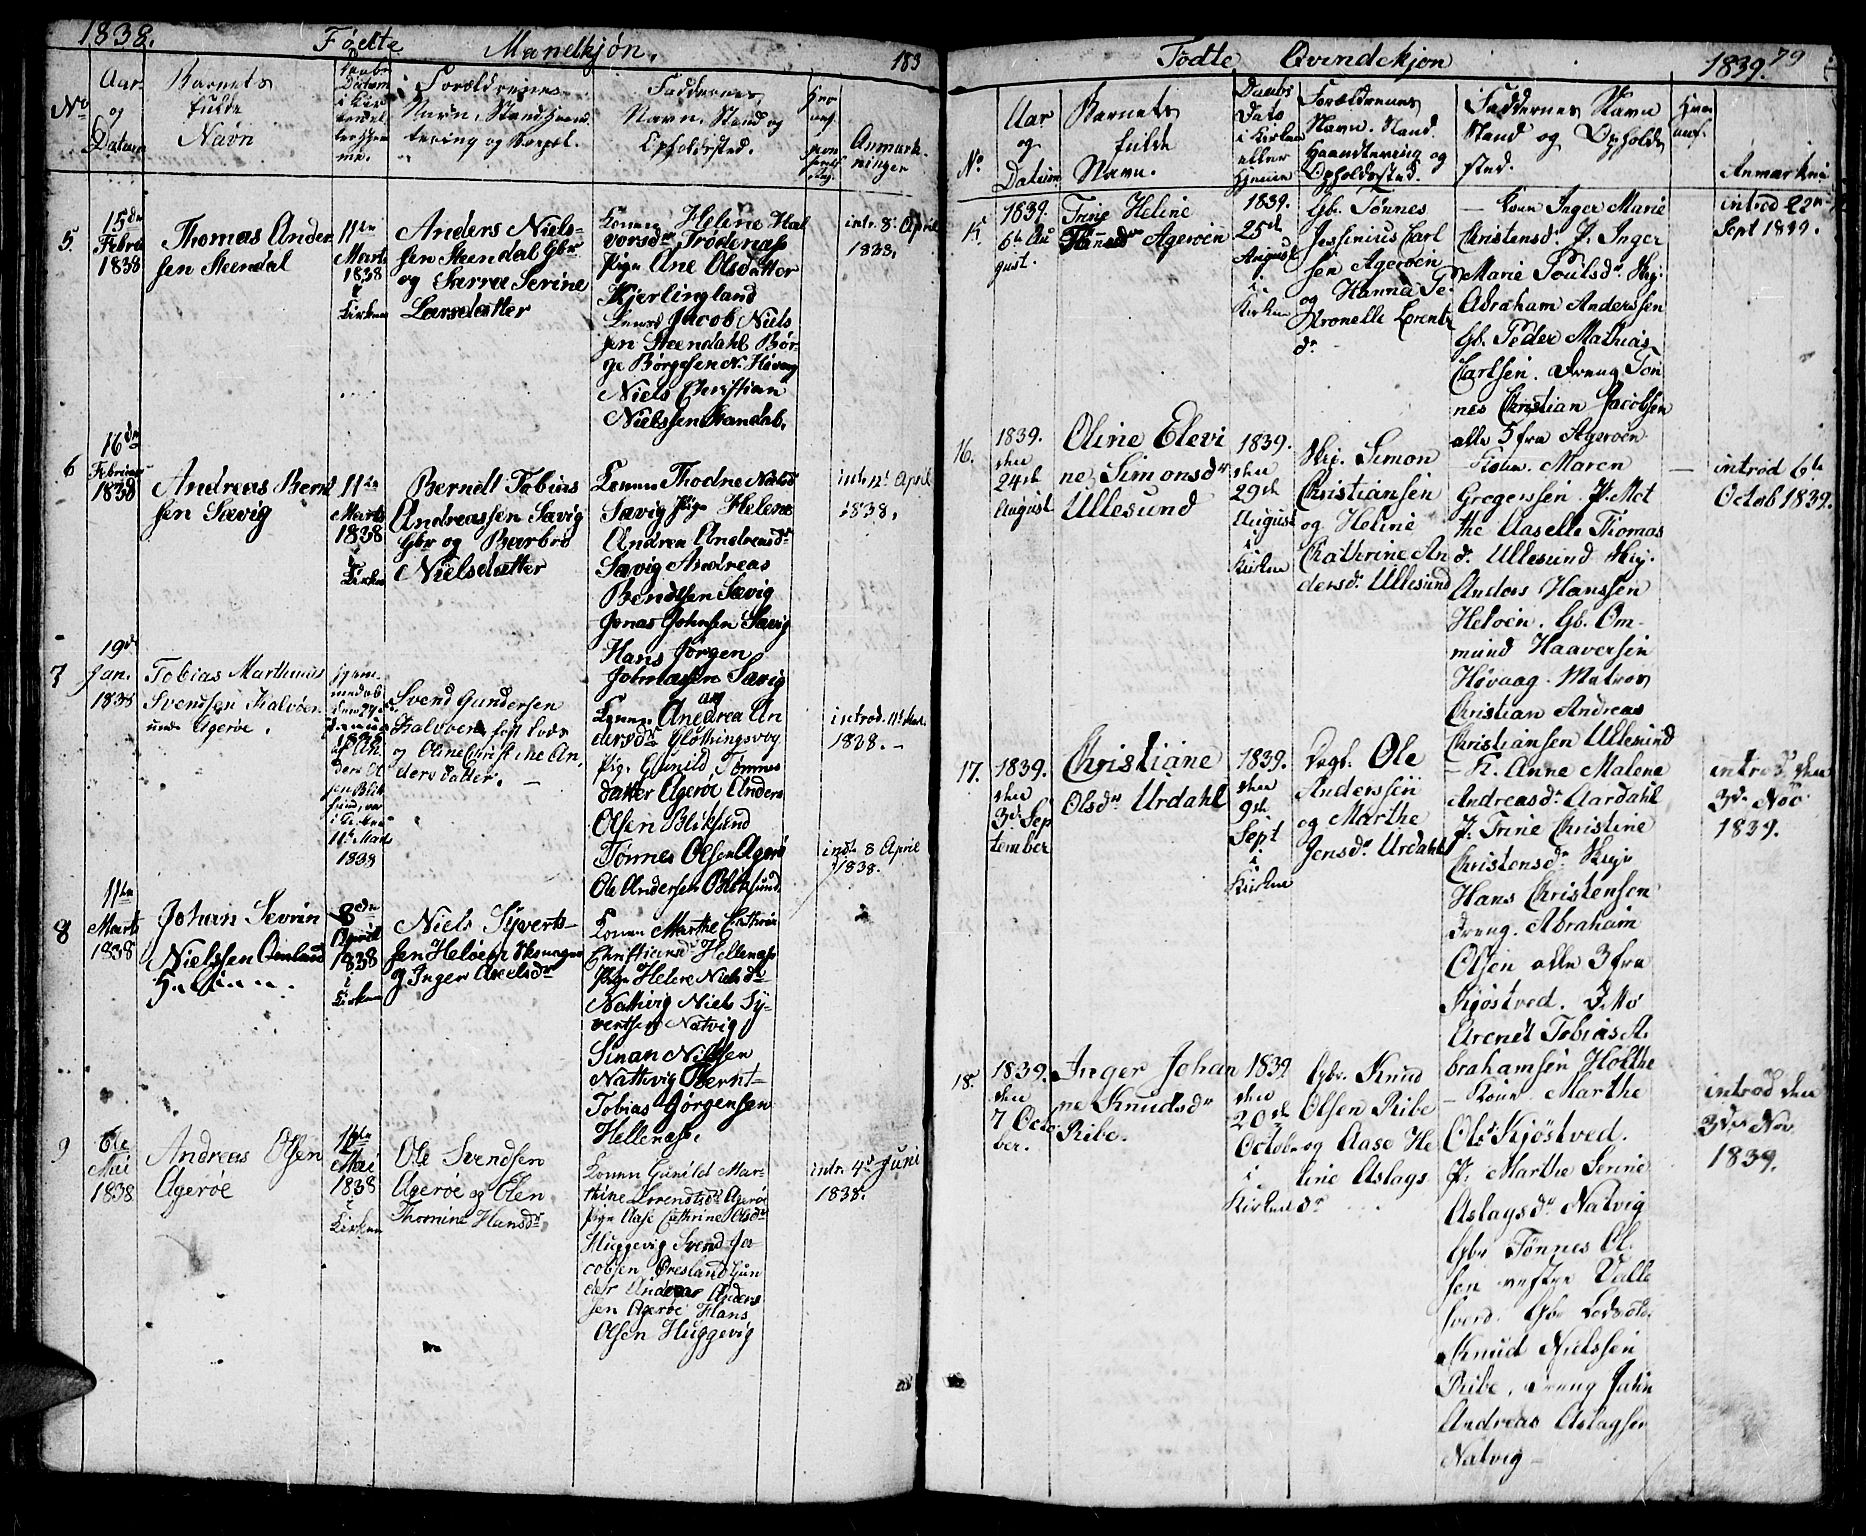 1838.
Fødte Mandkjøn.
183
No
Aar og Datum
Barnets fulde Navn
Forældrenes Navn, Stand
Faddernes Navn, Stand og Opholdssted.
Anmærkninger
5
15de Febru 1838
Thomas Andersen Steendal
11te Marts 1838 i Kirken
Anders Nielsen Steendal Gbr og Sarra Serine Larsdatter
Konen Helene Hal
vorsdr Trødenæss
Pige Ane Olsdatter
Kjerlingland
Jacob Niels
sen Steendahl Bør-
ge Børgesen N. Høvag
Niels Christian
Nielssen Standal.
intr. 8 April 1838.
6
16de Februar 1838
Andreas Berntsen Sævig
11te Marts 1838 i Kirken
Berndt Tobias Andreassen Sævig Gbr og Barbro Nielsdatter
Konen Thodne Nielsd
Sævig Pige Helene
Andrea Andreasdr
Sævig Andreas
Bendtsen Sævig
Jonas Johnsen Sævig
Hans Jørgen
Sævig
intr. 11t April 1838.
7
19de Jan. 1838
Tobias Marthinus Svendsen Kalvøen Agerøe.
11te Marts 1838
Svend Gundersen Kalvøen og Oline Christine Andersdatter.
Konen Andrea An
dersdr Glothingsvog
Pige Gunild Tønnes
datter Agerøe Anders
Olsen Bliksund
Tønnes Olsen Agerø
Ole Andersen Bliksund
introd. 11t Mar. 1838.
8
11te Marts 1838
Johan Sevrin Nielssen Omland
8de April 1838 i Kirken
Niels Syvertsen Heløen og Inger Axelsdr
Konen Marthe Cathrin
Christiansdr Hellenæss
Pige Helene Nielsdr
Nathvig Niels Sy-
vertsen Natvig
Sinan Nilsen
Nathvig Bernt
Tobias Jørgensen
Hellenæss.
intr. 8 April 1838.
9
6te Mai 1838
Andreas Olsen Agerøe
Mai 1838 i Kirken
Ole Svendsen Agerøe og Elen Thomine Hansdr
Konen Gunild Mar-
thine Lorendtsdr Agerøe
Pige Aase Cathrine Olsdr
Huggevig Svend Ja-
cobsen Øresland Gun
der Anders
sen Agerøe Hans
Olsen Huggevig
intr. 4de Juni 1838.
Fødte Qvindekjøn
1839. 79
No
Aar og Datum
Barnets fulde Navn.
Daabs Dato i Kirken eller Hjemme
Forældrenes Navn, Stand, Haandtering og Opholdssted.
Faddernes Navn Stand og Opholdssted.
15
1839. 6te August.
Trine Heline Agerøen
1839. 25de August i Kirken
Gb. Tønnes Jessinius Carlsen Agerøen og Hanna Petronelle Lorentzdr
Kone Inger Marie
Christensd. P. Inger
Marie Poulsdr
Abraham Anderssen
Gb. Peder Mathias
Carlsen. Dreng Tøn
nes Christian Jacobsen
alle 5 fra Agerøen
introd 22 Sept 1839.
16.
1839. den 24de August
Oline Elevine Simonsdr Ullesund
1839. den 29de August i Kirken
Simon Christiansen og Heline Cathrine Andersdr Ullesund
Kone. Maren
Gregerssen. P. Mot
the Aaselle Thomas
dr Ullesund
Anders Hanssen
Heløen. Gb. Om-
mund Haaversen
Høvaag. Matros
Christian Andreas
Christiansen Ullesund
introd 6te Octob 1839.
17.
1839. den 3de September
Christiane Olsdr Urdahl
1839. den 9de Sept i Kirken
Ole Anderssen og Marthe Jensdr Urdahl
K. Anne Malene
Andreasdr Aardahl
P. Trine Christine
Christensdr
Hans Christensen
Dreng. Abraham
Olsen alle 3 fra
Kjøstved.
Arendt Tobias A.
brahamsen Holthe
introd den 3de Nov 1839.
18.
1839. den 7 October.
Inger Johanne Knudsdr Ribe.
1839 den 20de October i Kirken
Gbr. Knud Olsen Ribe og Aase Heline Aslagsdr
Kone Marthe
Olsdr Kjøstved.
P. Marthe Serine
Aslagsdr Natvig
Gbr Tønnes Ol-
sen vestre Valle
sverd.
Knud Nielssen
Ribe. Dreng Jahn
Andreas Aslagsen
Natvig
introd den 3de Nov 1839.